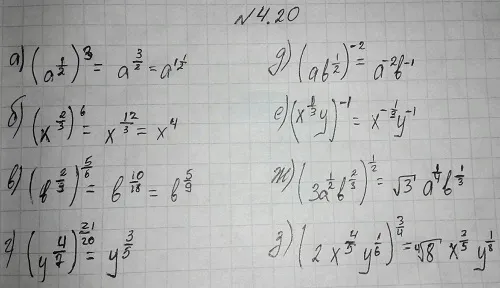 №4.20
а) (a^{1/2})^3 = a^{3/2} = a^{1 1/2}
б) (x^{2/3})^6 = x^{12/3} = x^4
в) (b^{2/3})^{5/6} = b^{10/18} = b^{5/9}
г) (y^{4/7})^{21/20} = y^{3/5}
д) (ab^{1/2})^{-2} = a^{-2}b^{-1}
е) (x^{1/3}y)^{-1} = x^{-1/3}y^{-1}
ж) (3a^{1/2}b^{2/3})^{1/2} = √3 a^{1/4}b^{1/3}
з) (2x^{4/5}y^{1/6})^{3/4} = ⁴√8 x^{3/5}y^{1/8}